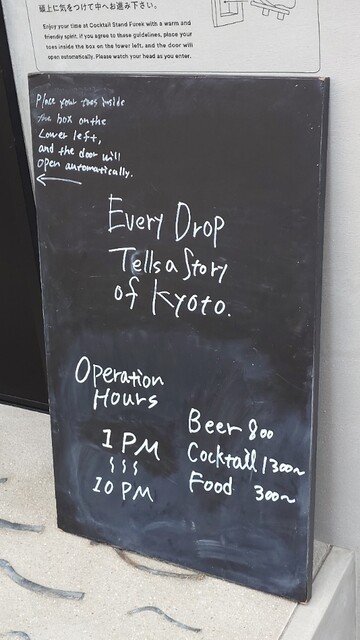 頭上に気をつけて中へお進み下さい。
Enjoy your time at Cocktail Stand Furek with a warm and
friendly spirit. If you agree to these guidelines, place your
toes inside the box on the lower left, and the door will
open automatically. Please watch your head as you enter.
Place your toes inside
the box on the
Lower left,
and the door will
open automatically.
←
Every Drop
Tells a Story
of Kyoto.
Operation
Hours
1 PM
10 PM
Beer 800
Cocktail 1300~
Food 300~